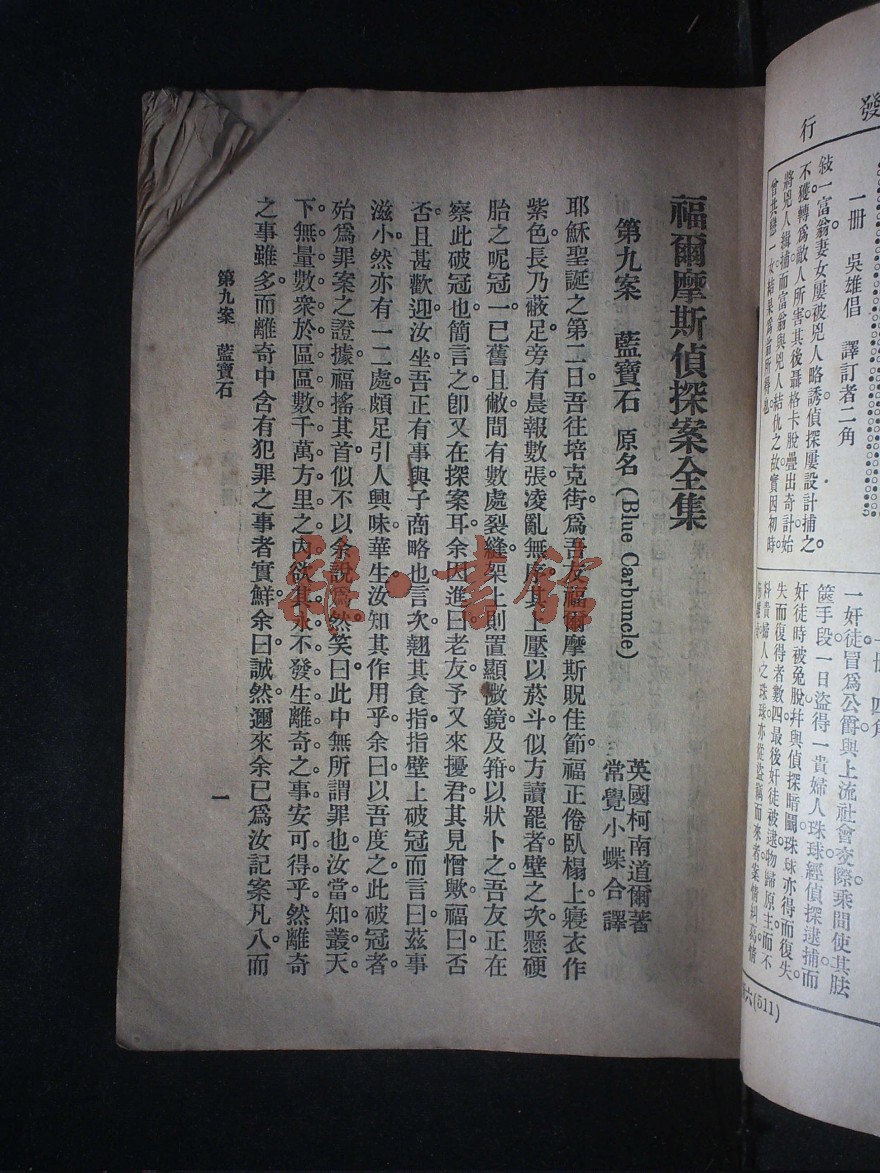 發
行
一册 吳雄倡 譯訂者二角
敍一富翁妻女屢被兇人略誘偵探屢設計捕之。
不獲轉爲敵人所害其後聶格卡脫疊出奇計始
將兇人緝捕而富翁與兇人結仇之故實因初時
曾共戀一女結果爲翁所得也。
一册 四角
一奸徒冒爲公爵與上流社會交際乘間使其胠
篋手段一日盜得一貴婦人珠球經偵探逮捕而
奸徒時被兔脫幷與偵探暗鬭珠球亦得而復失。
失而復得者數四最後奸徒被逮物歸原主而不
料貴婦人之珠球亦從盜竊而來者案情糾葛情
六(511)
福爾摩斯偵探案全集
第九案 藍寶石 原名 (Blue Carbuncle)
英國柯南道爾著
常覺小蝶合譯
耶穌聖誕之第二日吾往培克街爲吾友福爾摩斯貺佳節福正倦臥榻上。寢衣作
紫色長乃蔽足旁有晨報數張凌亂無序。其上壓以菸斗似方讀罷者壁之次懸硬
胎之呢冠一已舊且敝間有數處裂縫架上則置顯微鏡及箝以狀卜之吾友正在
察此破冠也簡言之卽又在探案耳余因進曰老友予又來擾君其見憎歟福曰否
否且甚歡迎汝坐吾正有事與子商略也言次翹其食指指壁上破冠而言曰茲事
滋小然亦有一二處頗足引人興味華生汝知其作用乎余曰以吾度之此破冠者
殆爲罪案之證據福搖其首似不以余說爲然笑曰此中無所謂罪也汝當知叢天
下無量數衆於區區數千萬方里之內欲其永不發生離奇之事安可得乎然離奇
之事雖多而離奇中含有犯罪之事者實鮮余曰誠然邇來余已爲汝記案凡八而
第九案 藍寶石
一
雜·書館